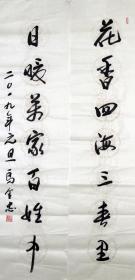 花香四海三春里
日暖万家百姓中
二〇一九年元旦